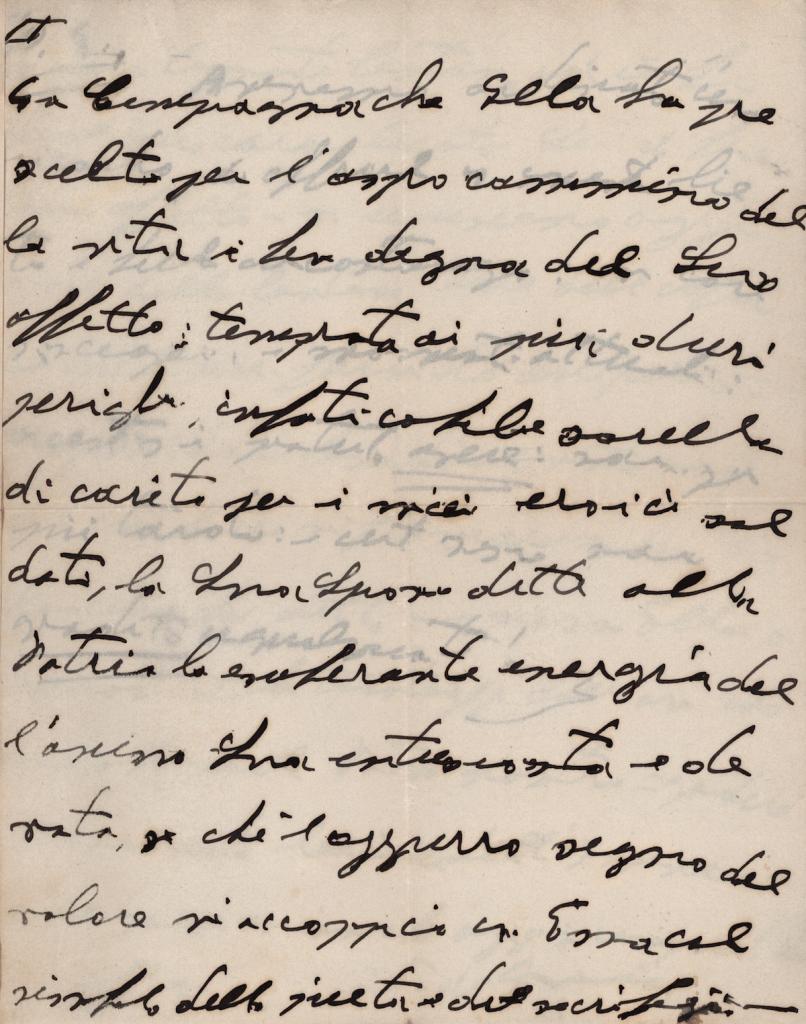 II
La Compagna che Ella ha pre
scelto per l'aspro cammino del
la vita è ben degna del Suo
affetto; temprata ai più duri
perigli, infaticabile sorella
di carità per i miei eroici sol
dati, la Sua Sposa dette alla
Patria la esuberante energia del
l'animo Suo entusiasta e de
vota, sì che l'azzurro segno del
valore si accoppia in Essa col
simbolo della pietà e del sacrifizio —